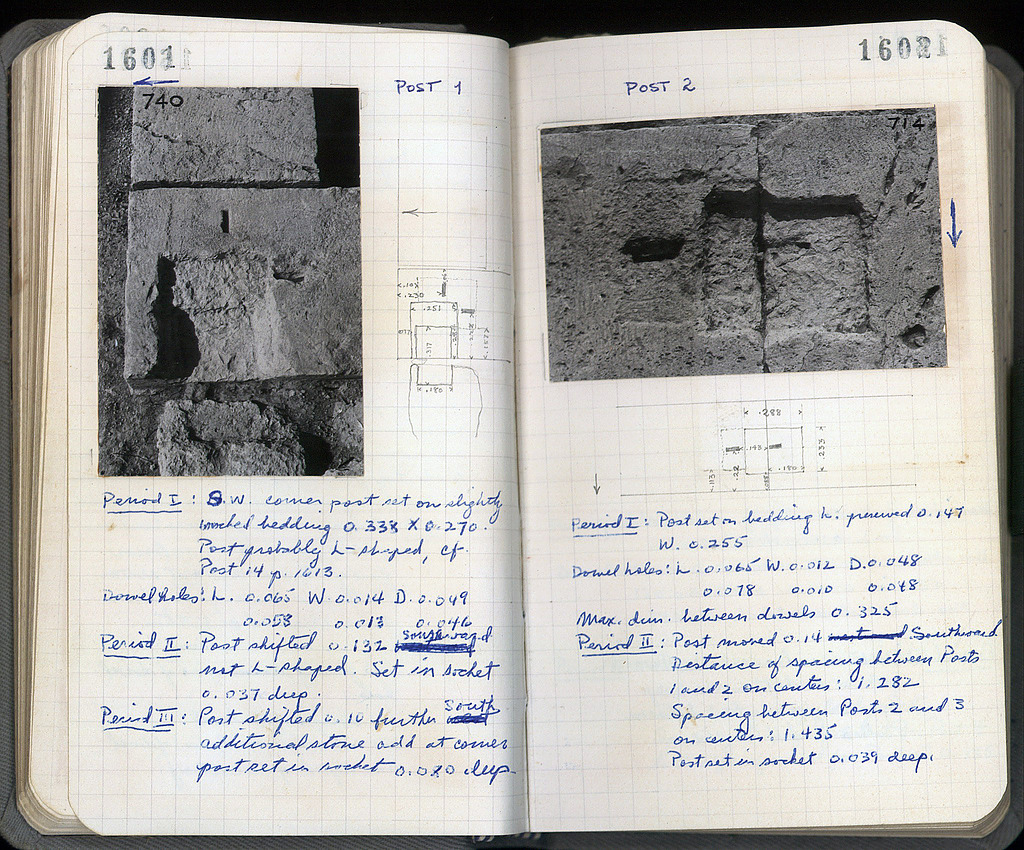 1601
POST 1
740
.10
.230
.251
.317
.180
Period I: S.W. corner post set on slightly
worked bedding 0.338 X 0.270.
Post probably L-shaped, cf.
Post 14 p. 1613.
Dowel holes: L. 0.065 W. 0.014 D. 0.049
0.053 0.013 0.046
Period II: Post shifted 0.132 southward
not L-shaped. Set in socket
0.037 deep.
Period III: Post shifted 0.10 further South
additional stone add at corner
post set in socket 0.020 deep.
1602
POST 2
714
.288
.143
.233
.22
.180
.113
Period I: Post set on bedding L. preserved 0.147
W. 0.255
Dowel holes: L. 0.065 W. 0.012 D. 0.048
0.078 0.010 0.048
Max. dim. between dowels 0.325
Period II: Post moved 0.14 Southward
Distance of spacing between Posts
1 and 2 on centers: 1.282
Spacing between Posts 2 and 3
on centers: 1.435
Post set in socket 0.039 deep.